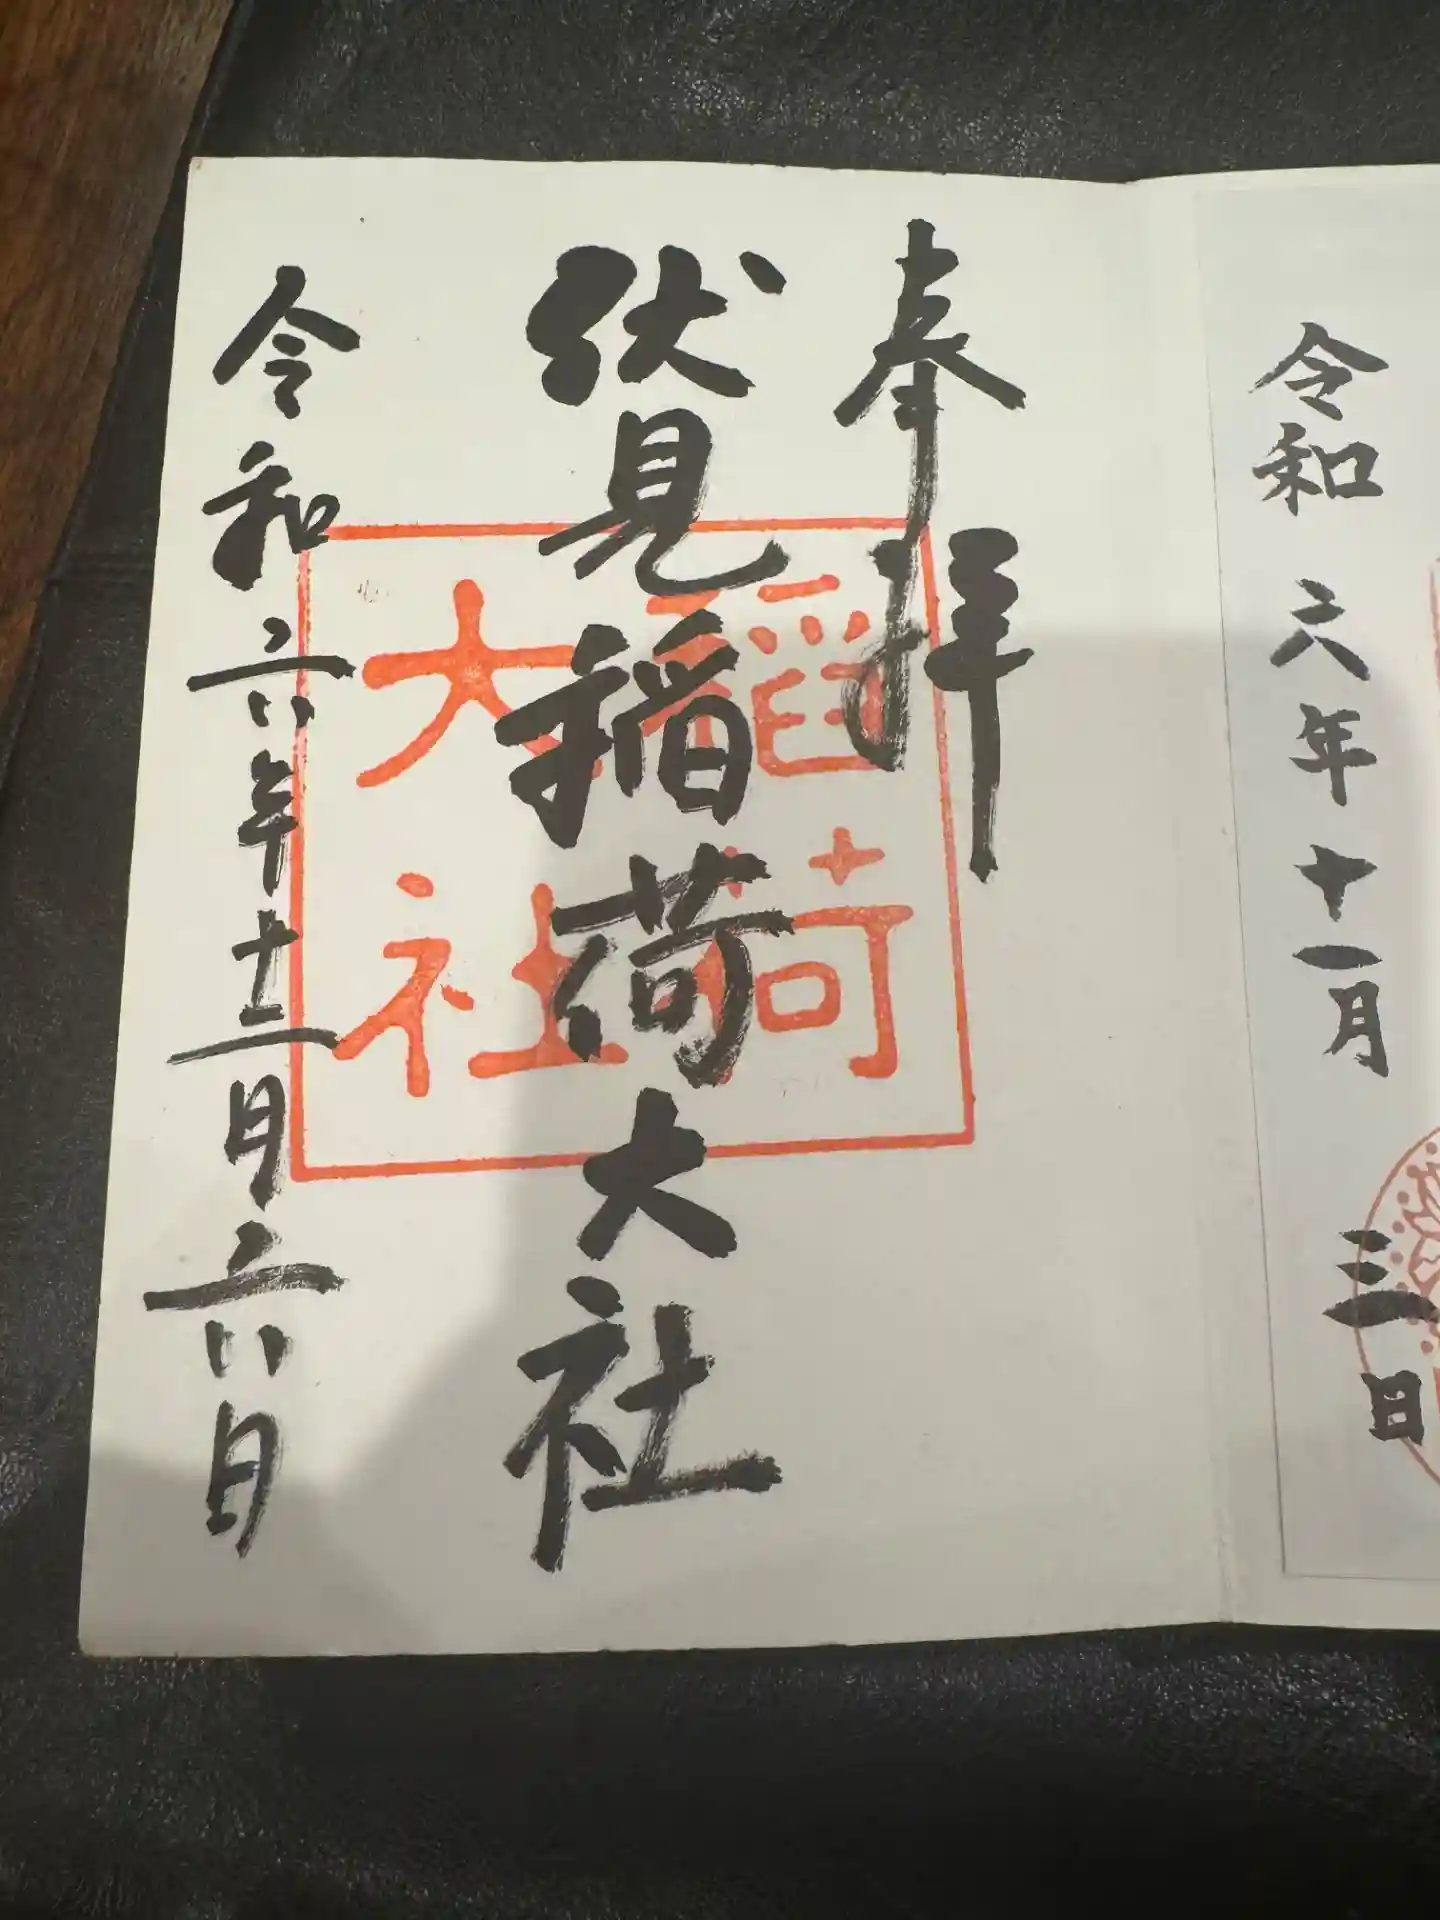 令和六年十一月三日
奉拝
伏見稲荷大社
令和六年十二月六日
稻荷
大社